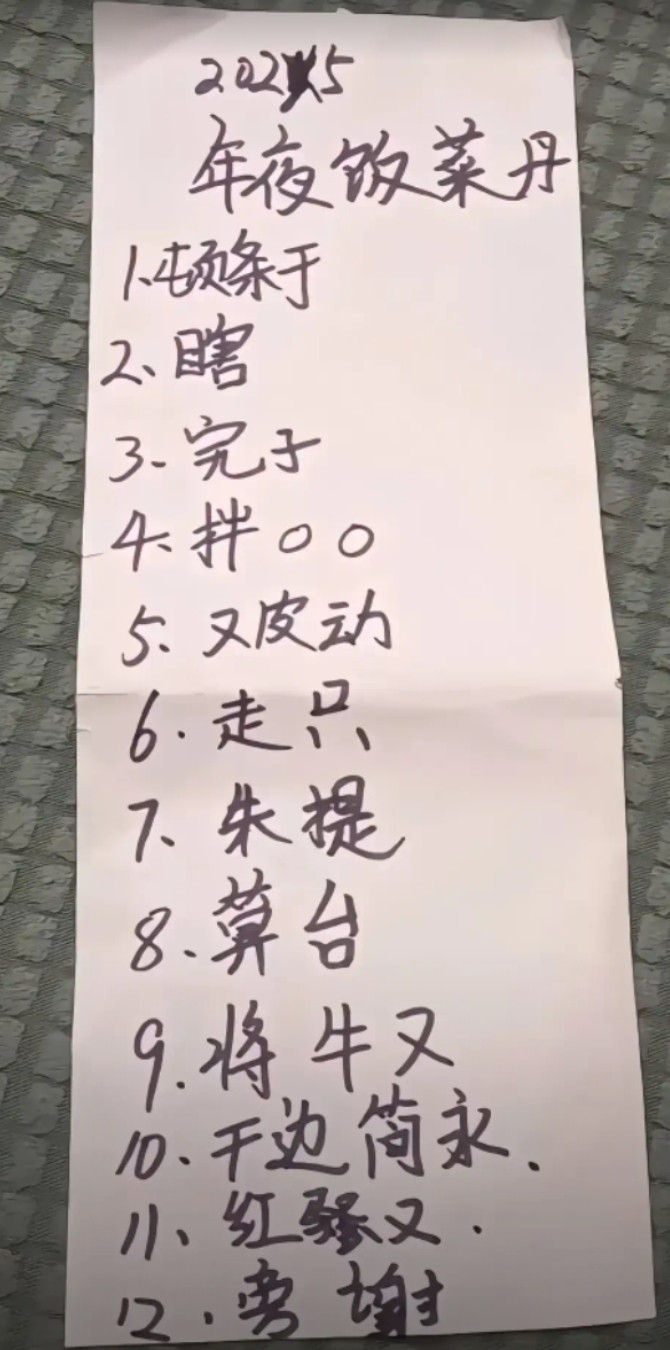 2025
年夜饭菜丹
1.顿条于
2、瞎
3.完子
4、拌〇〇
5.又皮动
6.走只
7、朱提
8.萛台
9.将牛又
10.干边简永.
11、红骚又.
12.旁